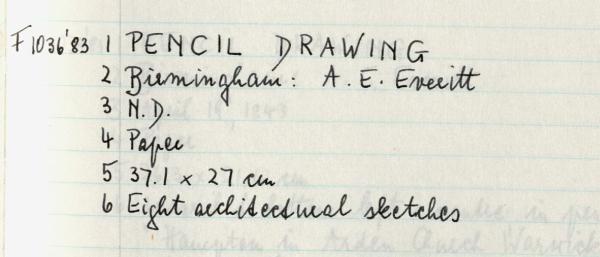 F1036'83 1 PENCIL DRAWING
2 Birmingham: A. E. Everitt
3 N.D.
4 Paper
5 37.1 x 27 cm
6 Eight architectural sketches